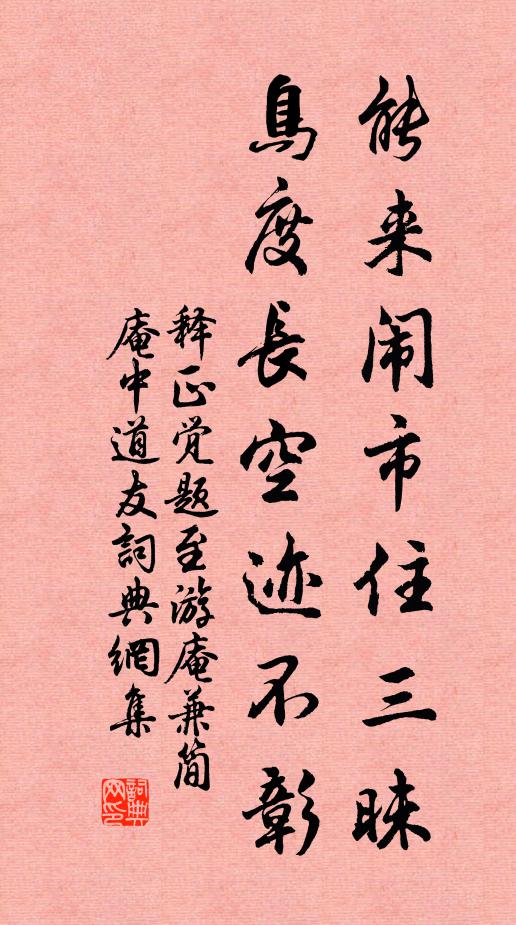 能来闹市住三昧
鳥度長空迹不彰
释正觉题至游庵兼简
庵中道友詞典網集
詞典网印